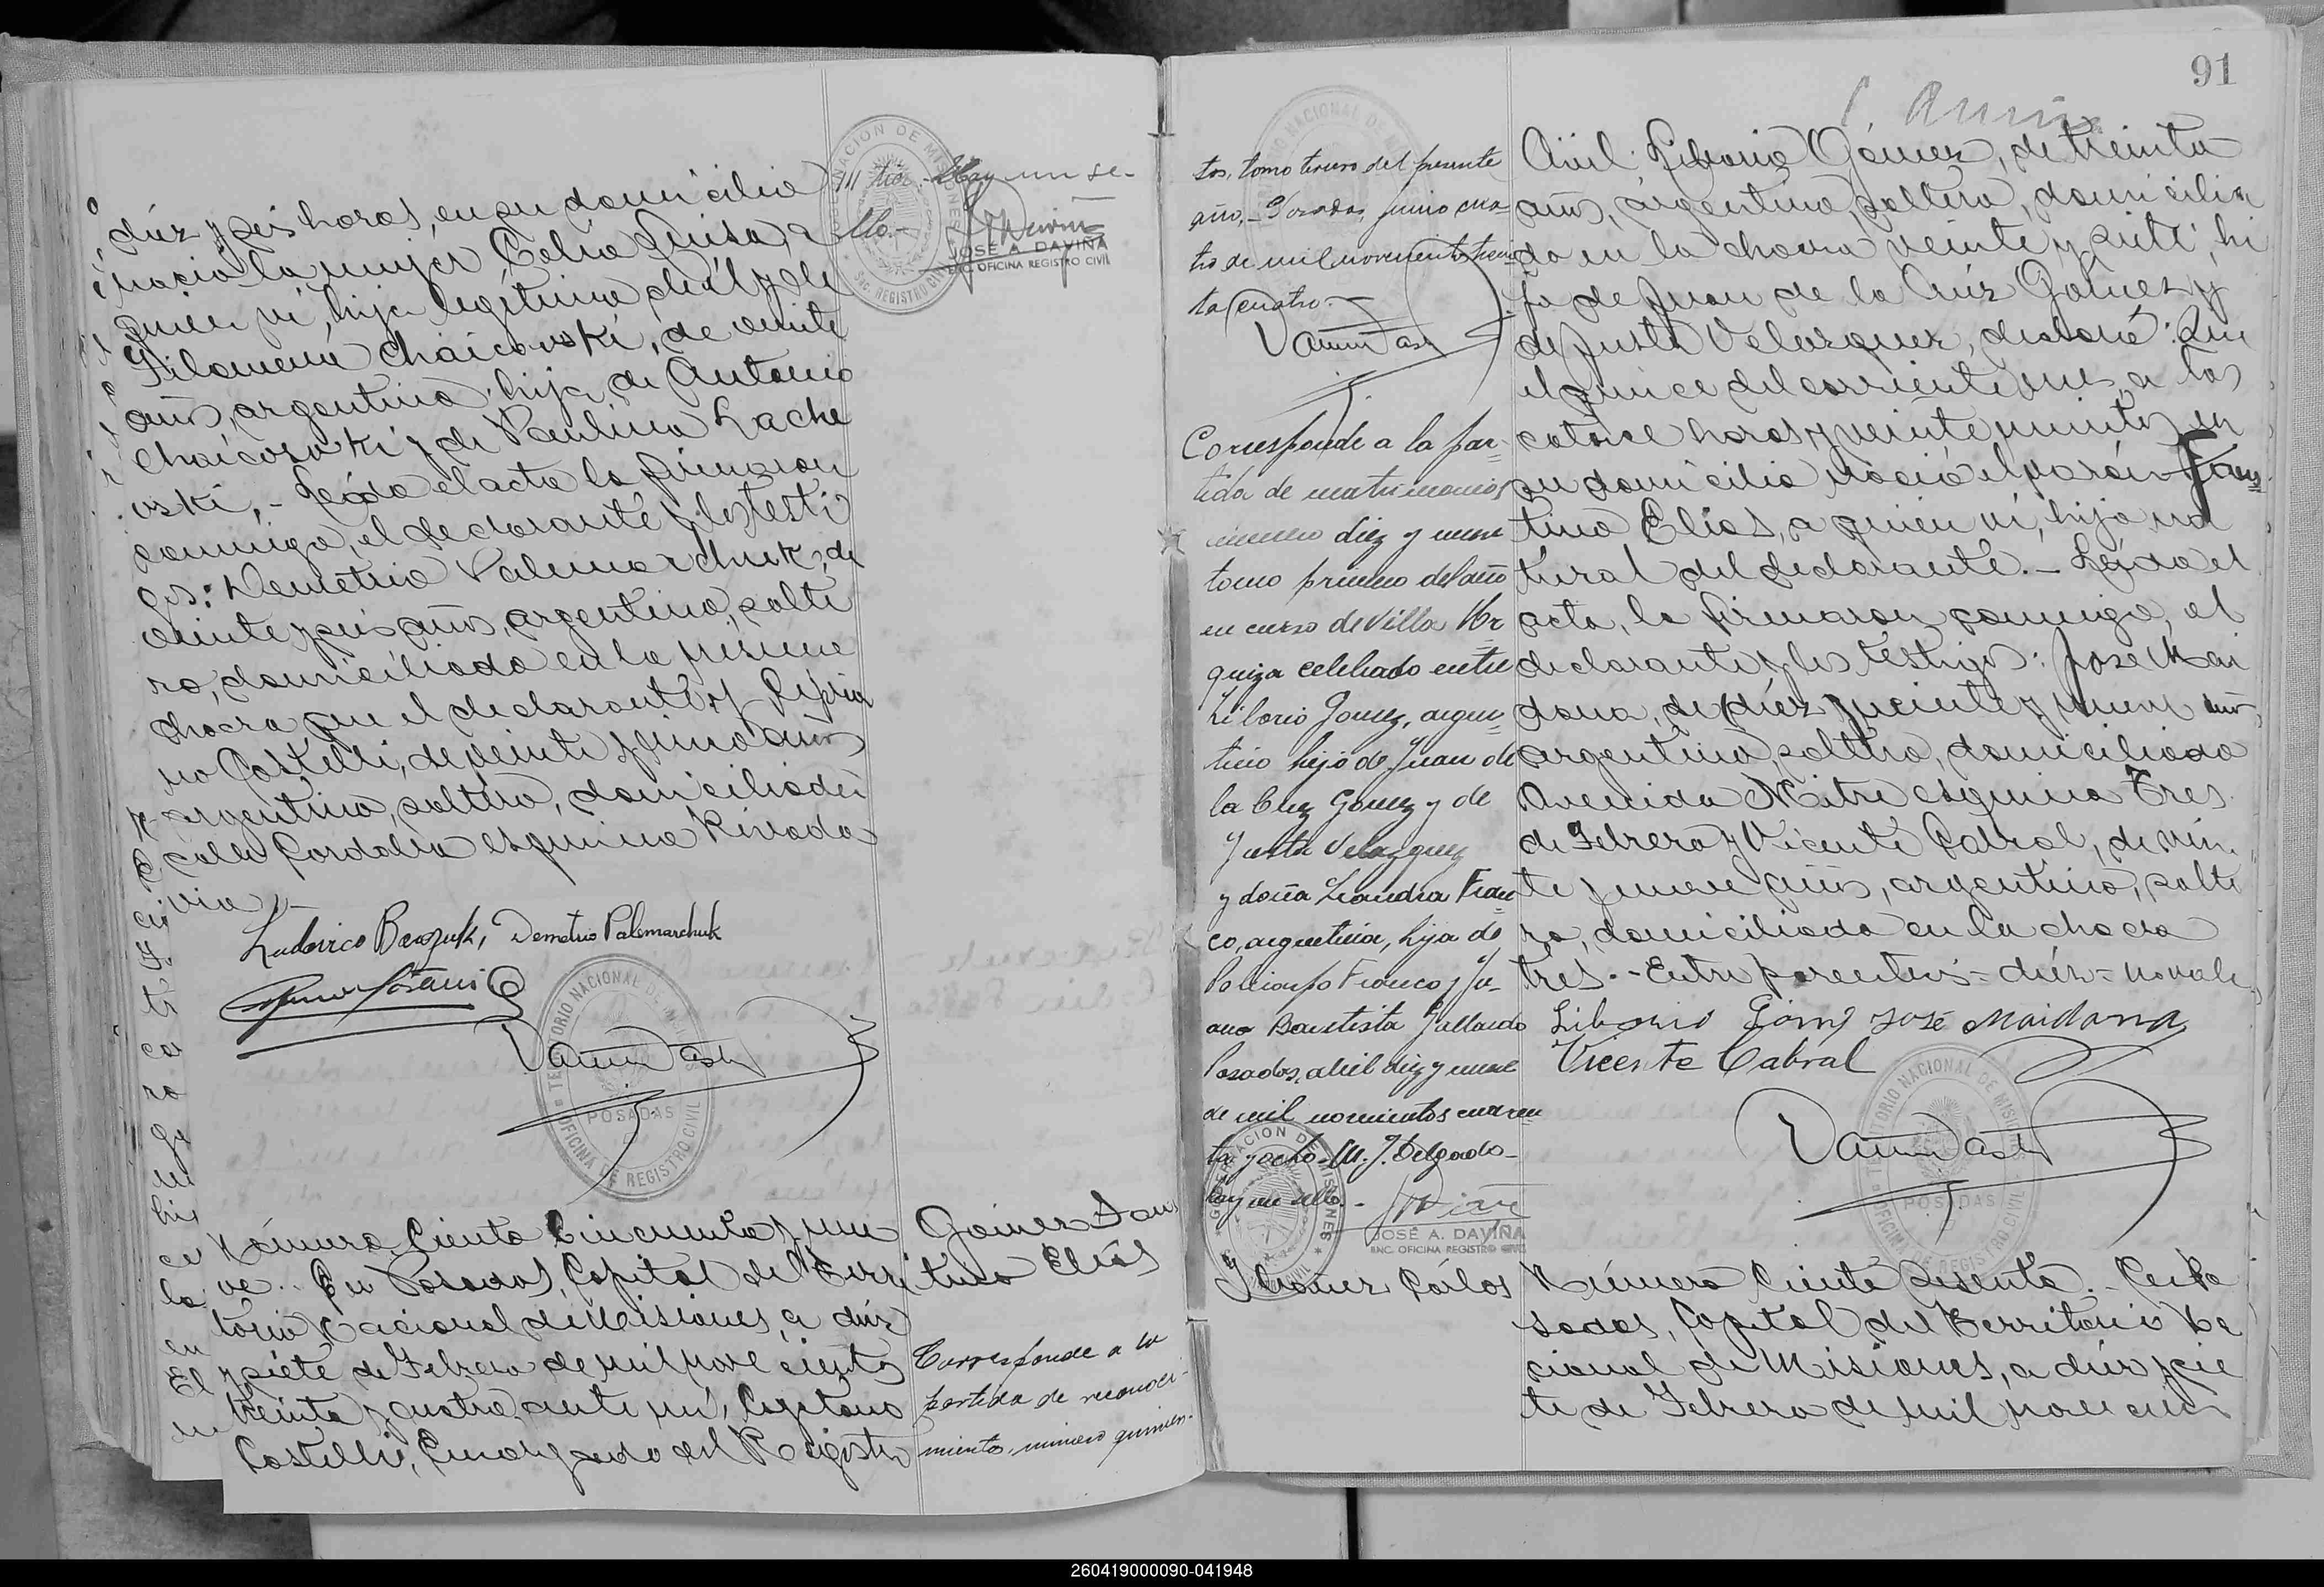 diéz y seis horas, en su domicilio
nació la mujer Celia Luisa, a
quien ví, hija legítima de él y de
Filomena Chaicovski, de veinte
años, argentina, hija de Antonio
Chaicovski y de Paulina Lache
vski,- Leída el acta la firmaron
conmigo, el declarante y los testi
gos: Demetrio Palemarchuk, de
veinte y seis años, argentino, solte
ro, domiciliado en la misma
chacra que el declarante y
no Costelli, de veinte y cinco años
argentino, soltero, domiciliado
calle Cordoba esquina Rivada
via.-
Ludovico Demetrio Palemarchuk
TERRITORIO NACIONAL DE MISIONES
POSADAS
OFICINA DE REGISTRO CIVIL
Hay un se-
llo.-
JOSÉ A. DAVIÑA
ENC. OFICINA REGISTRO CIVIL
Número Ciento Cincuenta y nue
ve.- En Posadas, Capital del Terri
torio Nacional de Misiones, a diéz
y siete de Febrero de mil nove cientos
treinta y cuatro, ante mí, Cayetano
Castelli, Encargado del Registro
Gómez Faus
tino Elías
Corresponde a la
partida de reconoci-
miento, número quinien-
91
tos, tomo tercero del presente
año.- Posadas, junio cua-
tro de mil novecientos trein-
ta y cuatro.-
Corresponde a la par-
tida de matrimonios
número diez y nueve
tomo primero del año
en curso de Villa Ur
quiza celebrado entre
Liborio Gomez, argen-
tino hijo de Juan de
la Cruz Gomez y de
Justa Velazquez
y doña Leandra Fran
co, argentina, hija de
Policarpo Franco y Ju-
ana Bautista Gallardo
Posados, abril diez y nueve
de mil novecientos cuaren
ta y ocho.- M. J. Delgado-
hay un sello.-
JOSÉ A. DAVIÑA
ENC. OFICINA REGISTRO CIVIL
Carlos
Civil: Liborio Gómez, de treinta
años, argentino, soltero, domicilia
do en la chacra veinte y siete, hi
jo de Juan de la Crúz Gómez y
de Justa Velazquez, declaró: Que
el quince del corriente mes, a las
catorce horas y veinte minutos, en
su domicilio nació el varón Faus
tino Elías, a quien ví, hijo na
tural del declarante.- Leída el
acta, la firmaron conmigo, el
declarante y los testigos: José Mai
dana, de (diéz) y veinte y nueve años,
argentino, soltero, domiciliado
Avenida Mitre esquina Tres
de Febrero y Vicente Cabral, de vein
te y nueve años, argentino, solte
ro, domiciliado en la chacra
tres.- Entre parentesis- diéz- no vale
Liborio Gómez José Maidana
Vicente Cabral
TERRITORIO NACIONAL DE MISIONES
POSADAS
OFICINA DE REGISTRO CIVIL
Número Ciento Sesenta.- En Po
sadas, Capital del Territorio Na
cional de Misiones, a diéz y sie
te de Febrero de mil nove cien
260419000090-041948